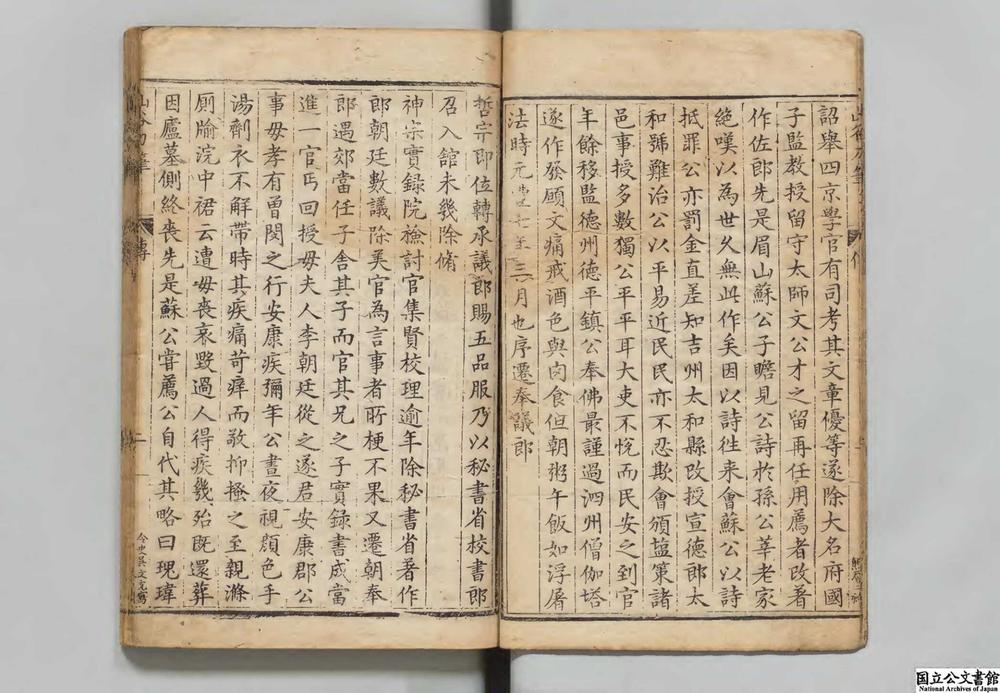 詔舉四京學官有司考其文章優等遂除大名府國
子監教授留守太師文公才之留再任用薦者改著
作佐郎先是眉山蘇公子瞻見公詩於孫公莘老家
絶嘆以為世久無此作矣因以詩徃来會蘇公以詩
抵罪公亦罰金直差知吉州太和縣改授宣德郎太
和號難治公以平易近民民亦不忍欺會頒塩策諸
邑事授多數獨公平平耳大吏不悅而民安之到官
年餘移監德州德平鎮公奉佛最謹過泗州僧伽塔
遂作發願文痛戒酒色與肉食但朝粥午飯如浮屠
法時元豊七年三月也序遷奉議郎
哲宗即位轉承議郎賜五品服乃以秘書省校書郎
召入館未幾除脩
神宗實録院檢討官集賢校理逾年除秘書省著作
郎朝廷數議除美官為言事者所梗不果又遷朝奉
郎遇郊當任子舍其子而官其兄之子實録書成當
進一官丐回授毋夫人李朝廷從之遂君安康郡公
事毋孝有曾閔之行安康疾彌年公晝夜視顔色手
湯劑衣不解帶時其疾痛苛痒而敬抑搔之至親滌
厠牏浣中裙云遭毋喪哀毁過人得疾幾殆旣還葬
因廬墓側終喪先是蘇公嘗薦公自代其略曰瑰瑋
傳
国立公文書館
National Archives of Japan